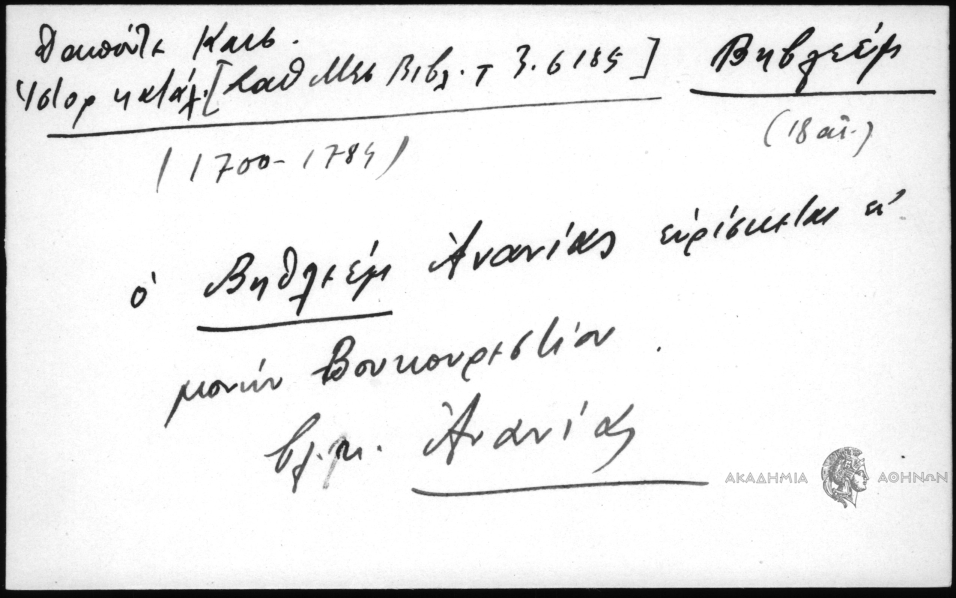 Δαπόντε Καισ.
Ιστορ κατάλ. [Σαθ Μεσ Βιβλ. τ 3. σ 185]
Βηθλεέμ
(1700-1784)
(18 αἰ.)
ὁ Βηθλεέμ Ἀνανίας εὑρίσκεται εἰ
μονήν Βουκουρεστίου.
βλ. λ. Ἀνανίας
ΑΚΑΔΗΜΙΑ ΑΘΗΝΩΝ